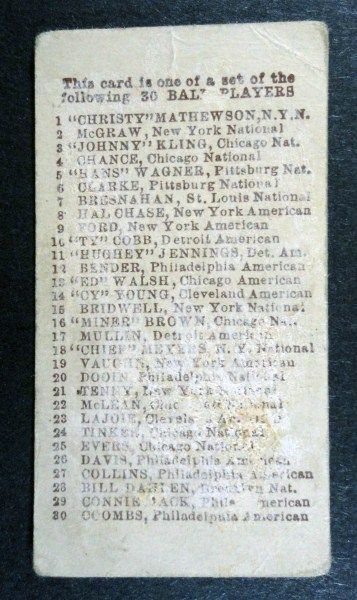 This card is one of a set of the
following 30 BALL PLAYERS
1 "CHRISTY" MATHEWSON, N.Y.N.
2 McGRAW, New York National
3 "JOHNNY" KLING, Chicago Nat.
4 CHANCE, Chicago National
5 "HANS" WAGNER, Pittsburg Nat.
6 CLARKE, Pittsburg National
7 BRESNAHAN, St. Louis National
8 HAL CHASE, New York American
9 FORD, New York American
10 "TY" COBB, Detroit American
11 "HUGHEY" JENNINGS, Det. Am.
12 BENDER, Philadelphia American
13 "ED" WALSH, Chicago American
14 "CY" YOUNG, Cleveland American
15 BRIDWELL, New York National
16 "MINER" BROWN, Chicago Nat.
17 MULLIN, Detroit American
18 "CHIEF" MEYERS, N. Y. National
19 VAUGHN, New York American
20 DOOIN, Philadelphia National
21 TENNY, New York National
22 McLEAN, National
23 LAJOIE,
24 TINKER, Chicago National
25 EVERS, Chicago National
26 DAVIS, Philadelphia American
27 COLLINS, Philadelphia American
28 BILL DAHLEN, Brooklyn Nat.
29 CONNIE MACK, Phila American
30 COOMBS, Philadelphia American